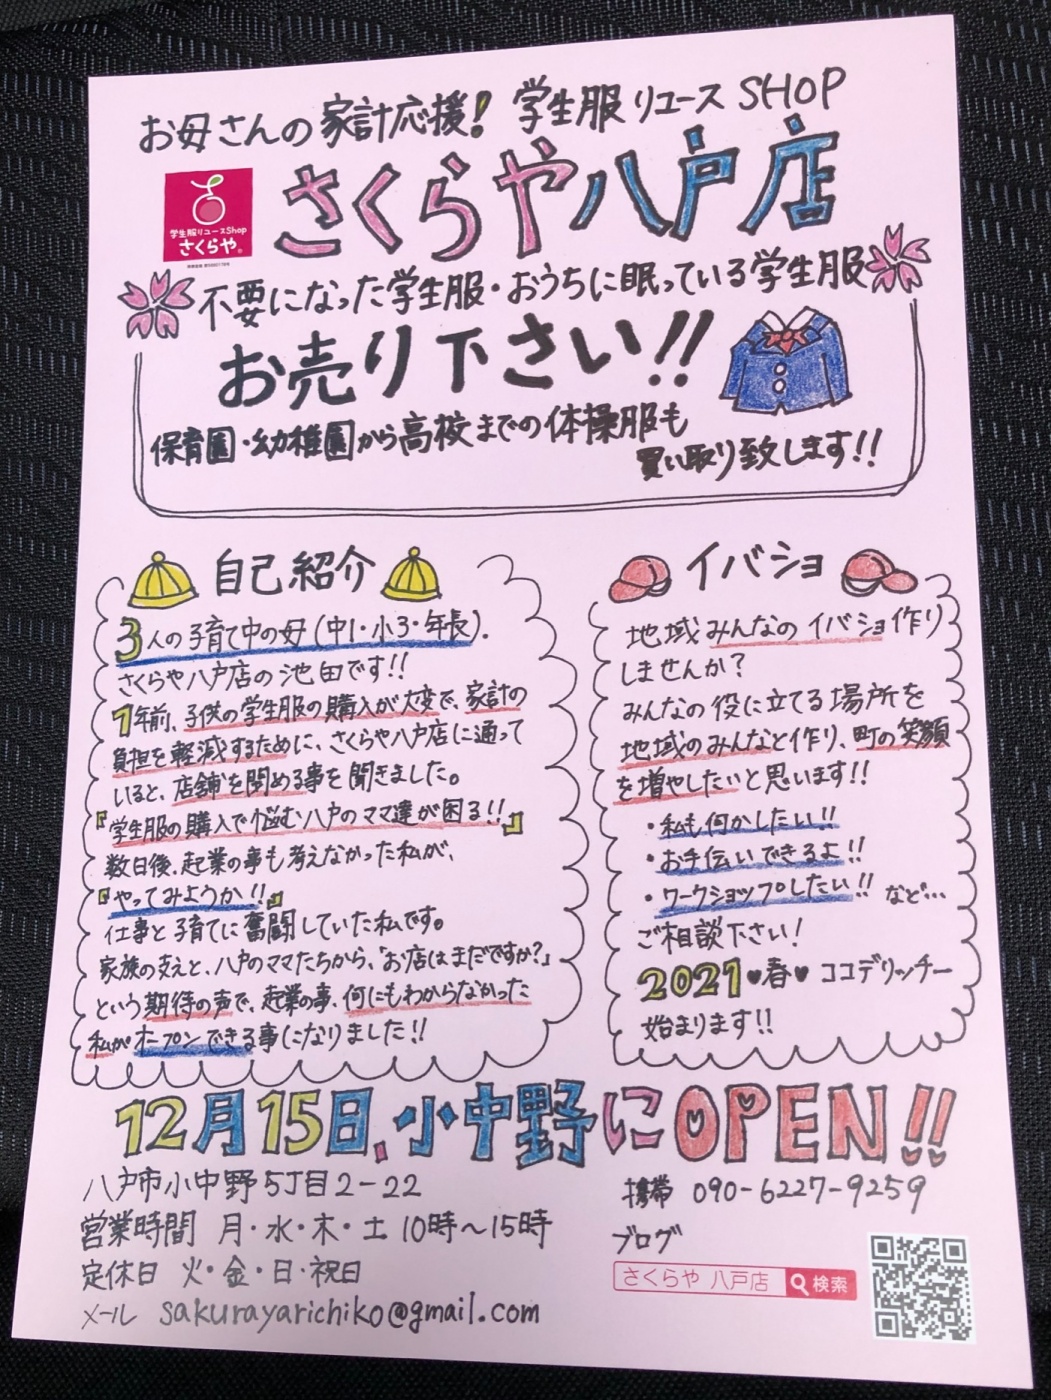 お母さんの家計応援! 学生服リユースSHOP
さくらや八戸店
学生服リユースShop
さくらや®
不要になった学生服・おうちに眠っている学生服
お売り下さい!!
保育園・幼稚園から高校までの体操服も
買い取り致します!!
自己紹介
3人の子育て中の母(中1・小3・年長).
さくらや八戸店の池田です!!
1年前、子供の学生服の購入が大変で、家計の
負担を軽減するために、さくらや八戸店に通って
いると、店舗を閉める事を聞きました。
『学生服の購入で悩む八戸のママ達が困る!!』
数日後、起業の事も考えなかった私が、
『やってみようか!!』
仕事と子育てに奮闘していた私です。
家族の支えと、八戸のママたちから、「お店はまだですか?」
という期待の声で、起業の事、何にもわからなかった
私がオープンできる事になりました!!
イバショ
地域みんなのイバショ作り
しませんか?
みんなの役に立てる場所を
地域のみんなと作り、町の笑顔
を増やしたいと思います!!
・私も何かしたい!!
・お手伝いできるよ!!
・ワークショップしたい!! など…
ご相談下さい!
2021♥春♥ココデリッチー
始まります!!
12月15日、小中野にOPEN!!
八戸市小中野5丁目2-22
営業時間 月・水・木・土 10時～15時
定休日 火・金・日・祝日
メール sakurayarichiko@gmail.com
携帯 090-6227-9259
ブログ
さくらや 八戸店 検索